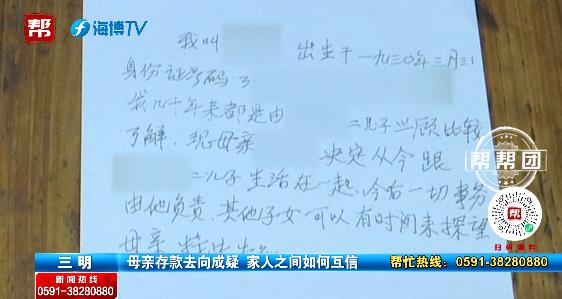 帮 海博TV
我叫 出生于一九三〇年三月三
身份证号码
我几十年来都是由
二儿子照顾比较
了解，现母亲
决定从今跟
二儿子生活在一起，今后一切事务
由他负责，其他子女可以有时间来探望
母亲
帮帮团
帮
扫码爆料
三明
母亲存款去向成疑 家人之间如何互信
帮忙热线：0591-38280880
新闻热线
0591-38280880